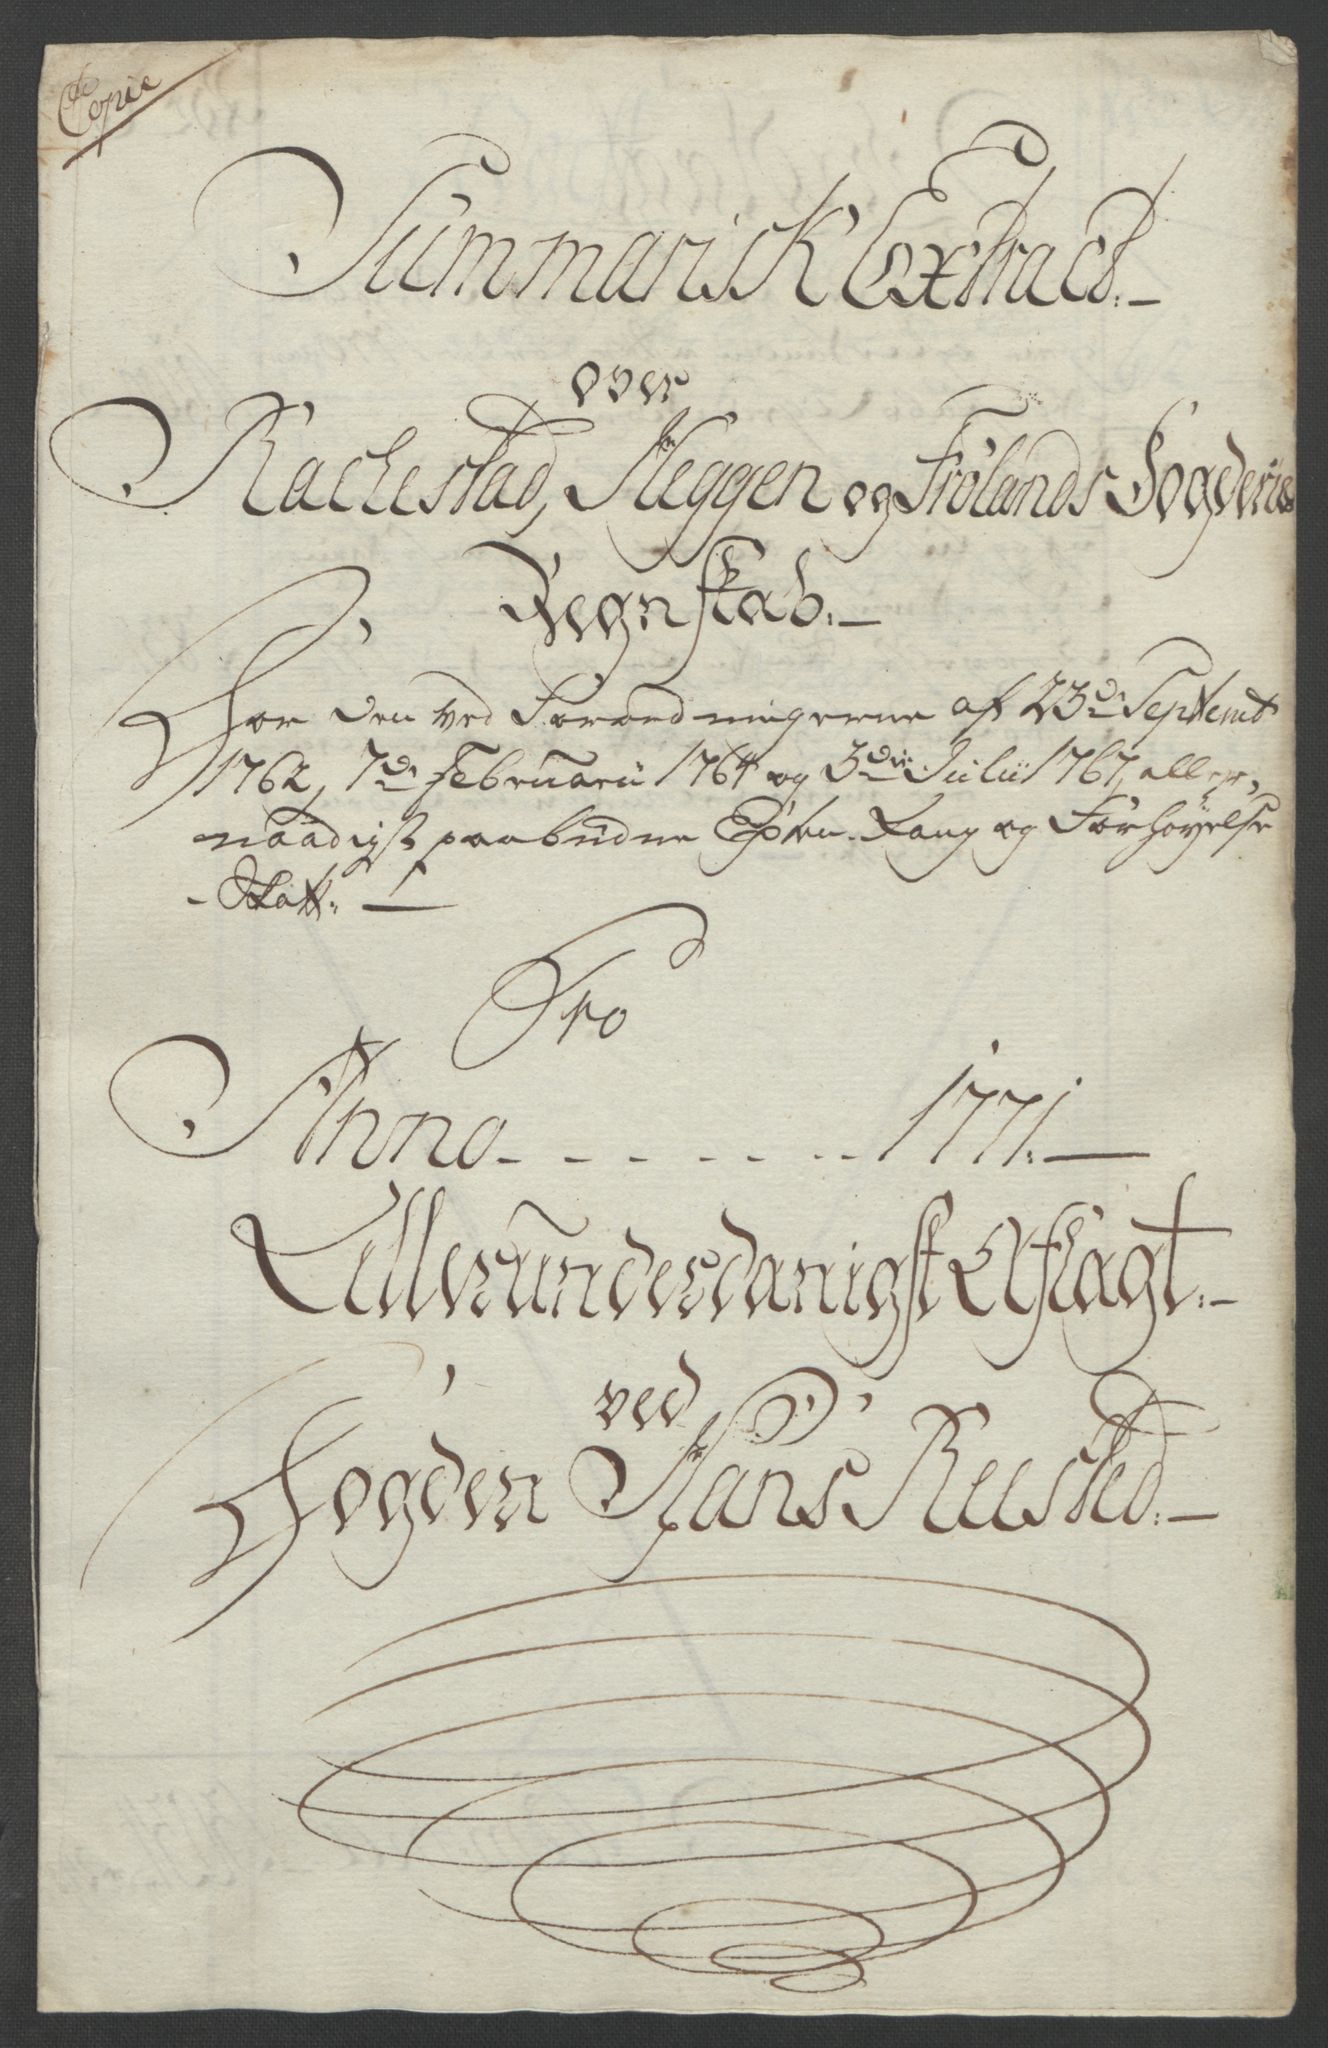 Copie
Summarisk Extract
over
Rachestad, Heggen og Frölands Fogderies
Regnskab
For den ved Forordningerne af 23de Septembr
1762, 7de Februarii 1764 og 3die Julii 1767, aller-
naadigst paabudne Extra- Rang og Forhøyelse
- Skatt.
Pro
Anno - - - - - - - 1771
Allerunderdanigst Aflagt
ved
Fogden Hans Reusted